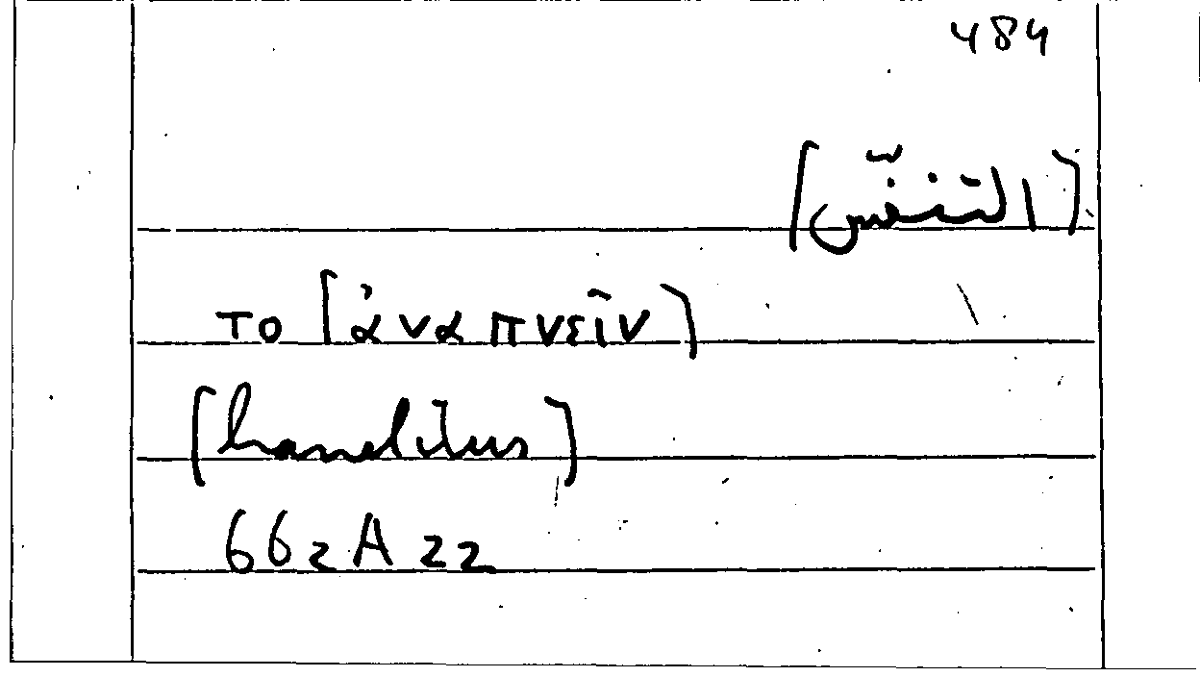 484
[التنفّس]
το [ἀναπνεῖν]
[hanelitus]
662 A 22